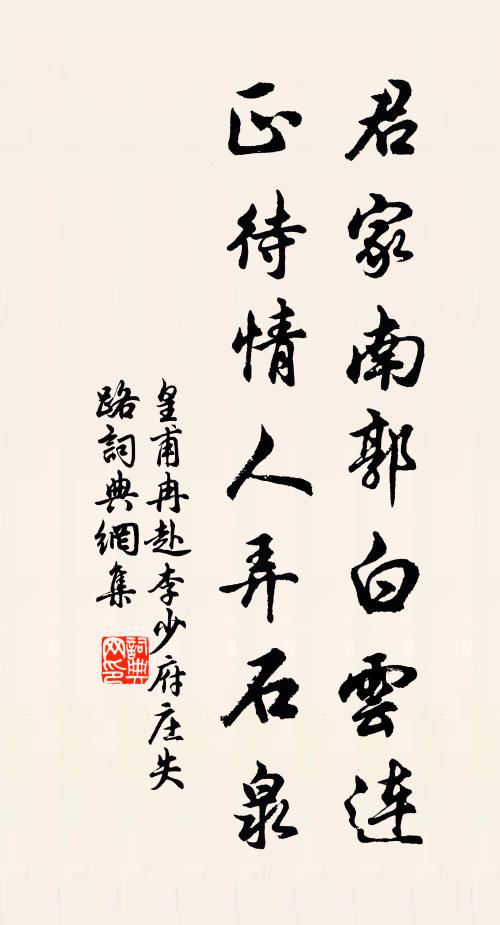 君家南郭白雲連
正待情人弄石泉
皇甫冉赴李少府庄失
路詞典網集
詞典
网印